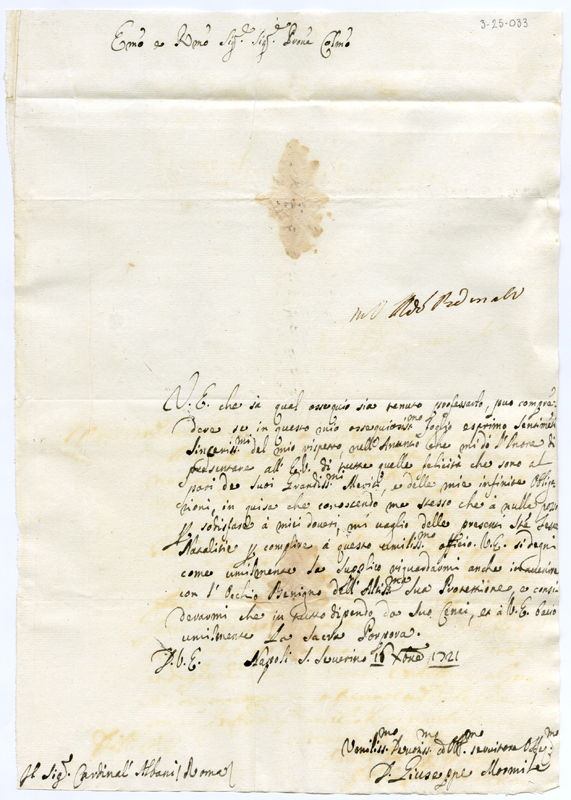 3-25-033
Emo e Rmo Sig.e Sig.e Prone Colmo
V. E. che sà qual ossequio sia tenuto professarlo, può compren
dere se in questo mio ossequiosis.mo foglio esprimo Sentimen
Sinceriss.mi del mio rispetto, nell'Annuntio che mi dà l'Onore di
presentare all' E.V. di tutte quelle felicità che sono al
pari de Suoi Grandiss.mi Meriti, e delle mie infinite Obliga
tioni, in guisa che conoscendo me stesso che à nulla posso
sodisfare à miei doveri, mi vaglio delle presenti Ste Feste
Natalitie complire à questo umiliss.mo officio. V.E. si degni
come umilmente la Supplico riguardarmi anche
con l' Occhio Benigno dell' Altiss.ma Sua Protettione, e consi
derarmi che in tutto dipendo da Suoi Cenni, et à V.E. bacio
umilmente La Sacra Porpora.
D. V. E. Napoli S. Severino 16 Xbre 1721
Umiliss.mo Devotiss.mo ed Oss.mo servitore Obl.mo
D. Giuseppe Mormile
Al Sig.e Cardinal' Albani / Roma /